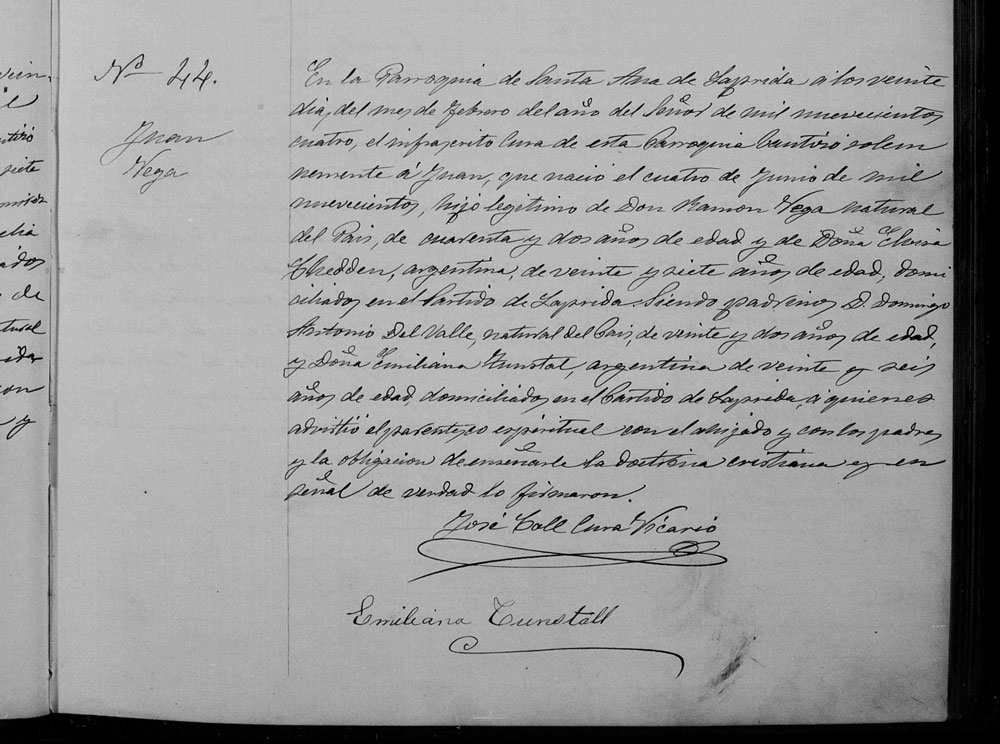 Nº 44.
Juan
Vega
En la Parroquia de Santa Ana de Laprida á los veinte
dias del mes de Febrero del año del Señor de mil nuevecientos
cuatro, el infrascrito Cura de esta Parroquia bautizó solem
nemente á Juan, que nació el cuatro de Junio de mil
nuevecientos, hijo legitimo de Don Ramon Vega natural
del Pais, de cuarenta y dos años de edad y de Doña Elvira
Chedden, argentina, de veinte y siete años de edad, domi
siliados en el Partido de Laprida. Siendo padrinos D. Domingo
Antonio Del Valle, natural del Pais, de veinte y dos años de edad,
y Doña Emiliana Tunstal, argentina de veinte y seis
años de edad, domiciliados en el Partido de Laprida, á quienes
advirtió el parentesco espiritual con el ahijado y con los padres
y la obligacion de enseñarle la doctrina cristiana y en
señal de verdad lo firmaron.
José Coll Cura Vicario
Emiliana Tunstall
vein-
il
siete
elia
ados
de
con
y